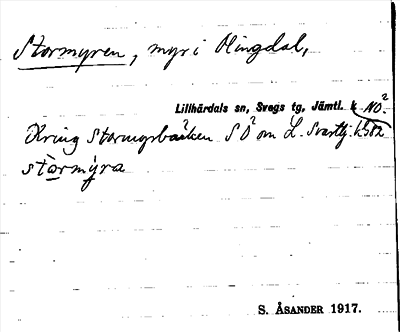 Stormyren, myr i Olingdal,
Lillhärdals sn, Svegs tg, Jämtl. l. NO2
Kring Stormyrbäcken SO2 om L. Svarttj. k.
stòrmýra
S. ÅSANDER 1917.